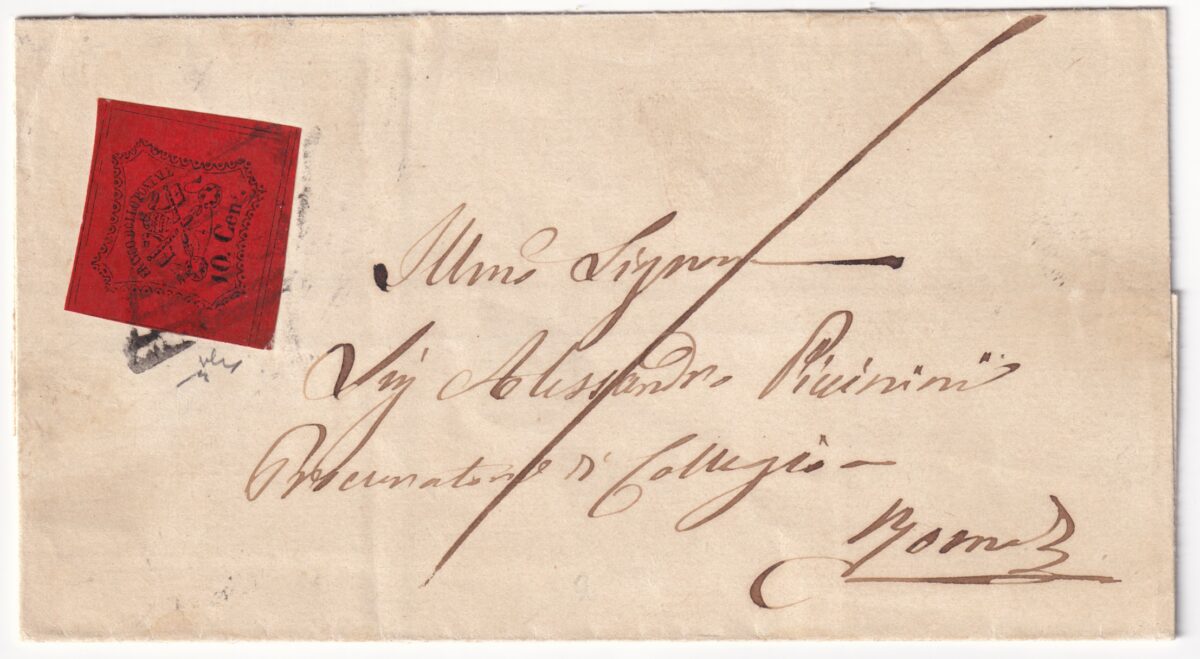 FRANCO BOLLO POSTALE
10 Cent.
Illmo Signor
Sig Alessandro Piccinini
Procuratore di Collegio
Roma